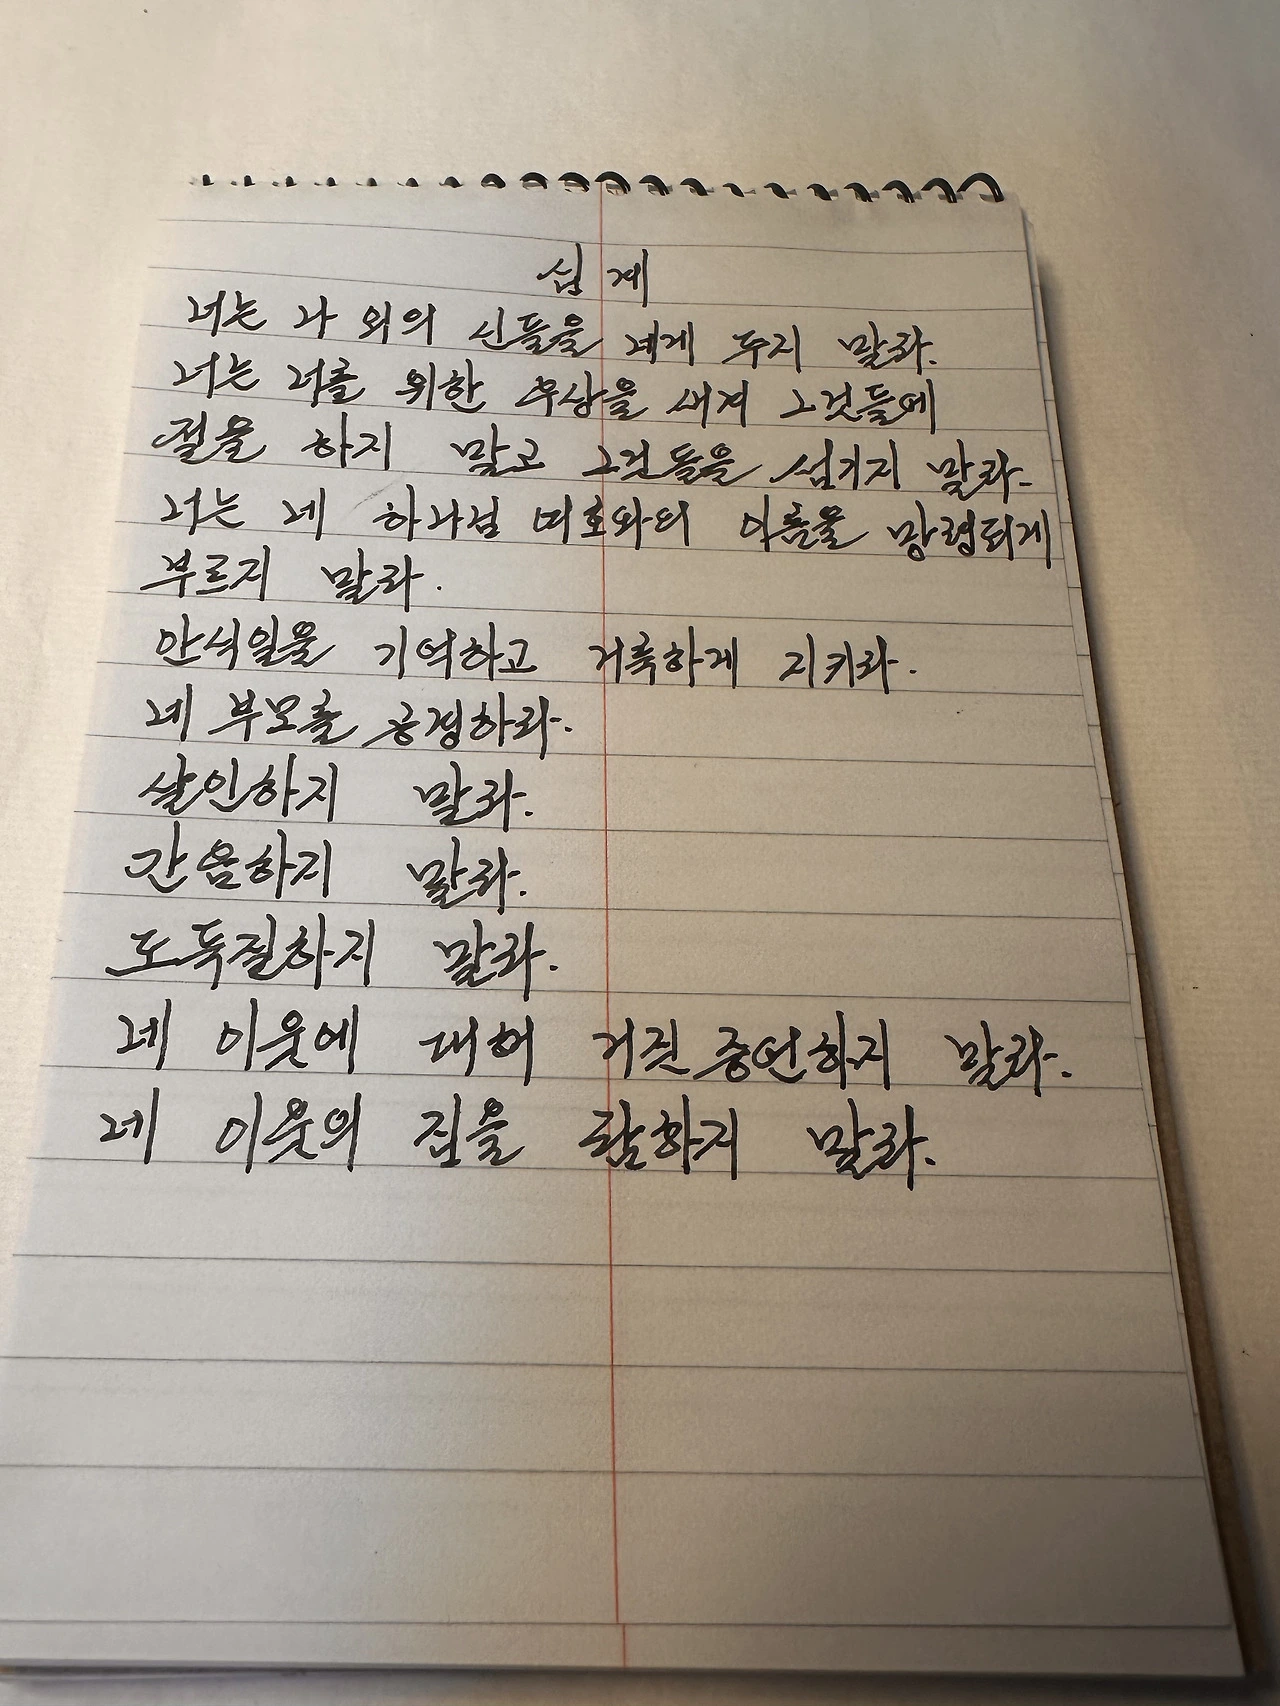 십계
너는 나 외의 신들을 네게 두지 말라.
너는 너를 위한 우상을 새겨 그것들에
절을 하지 말고 그것들을 섬기지 말라.
너는 네 하나님 여호와의 이름을 망령되게
부르지 말라.
안식일을 기억하고 거룩하게 지키라.
네 부모를 공경하라.
살인하지 말라.
간음하지 말라.
도둑질하지 말라.
네 이웃에 대해 거짓 증언하지 말라.
네 이웃의 집을 탐하지 말라.